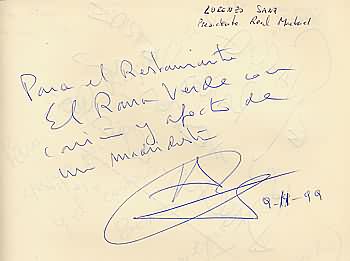 LORENZO SANZ
Presidente Real Madrid
Para el Restaurante
El Rana Verde con
cariño y afecto de
un madridista
9-11-99